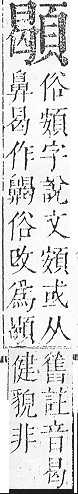 俗頞字說文頞或从
鼻曷作齃俗攺為
舊註音曷
健貌非